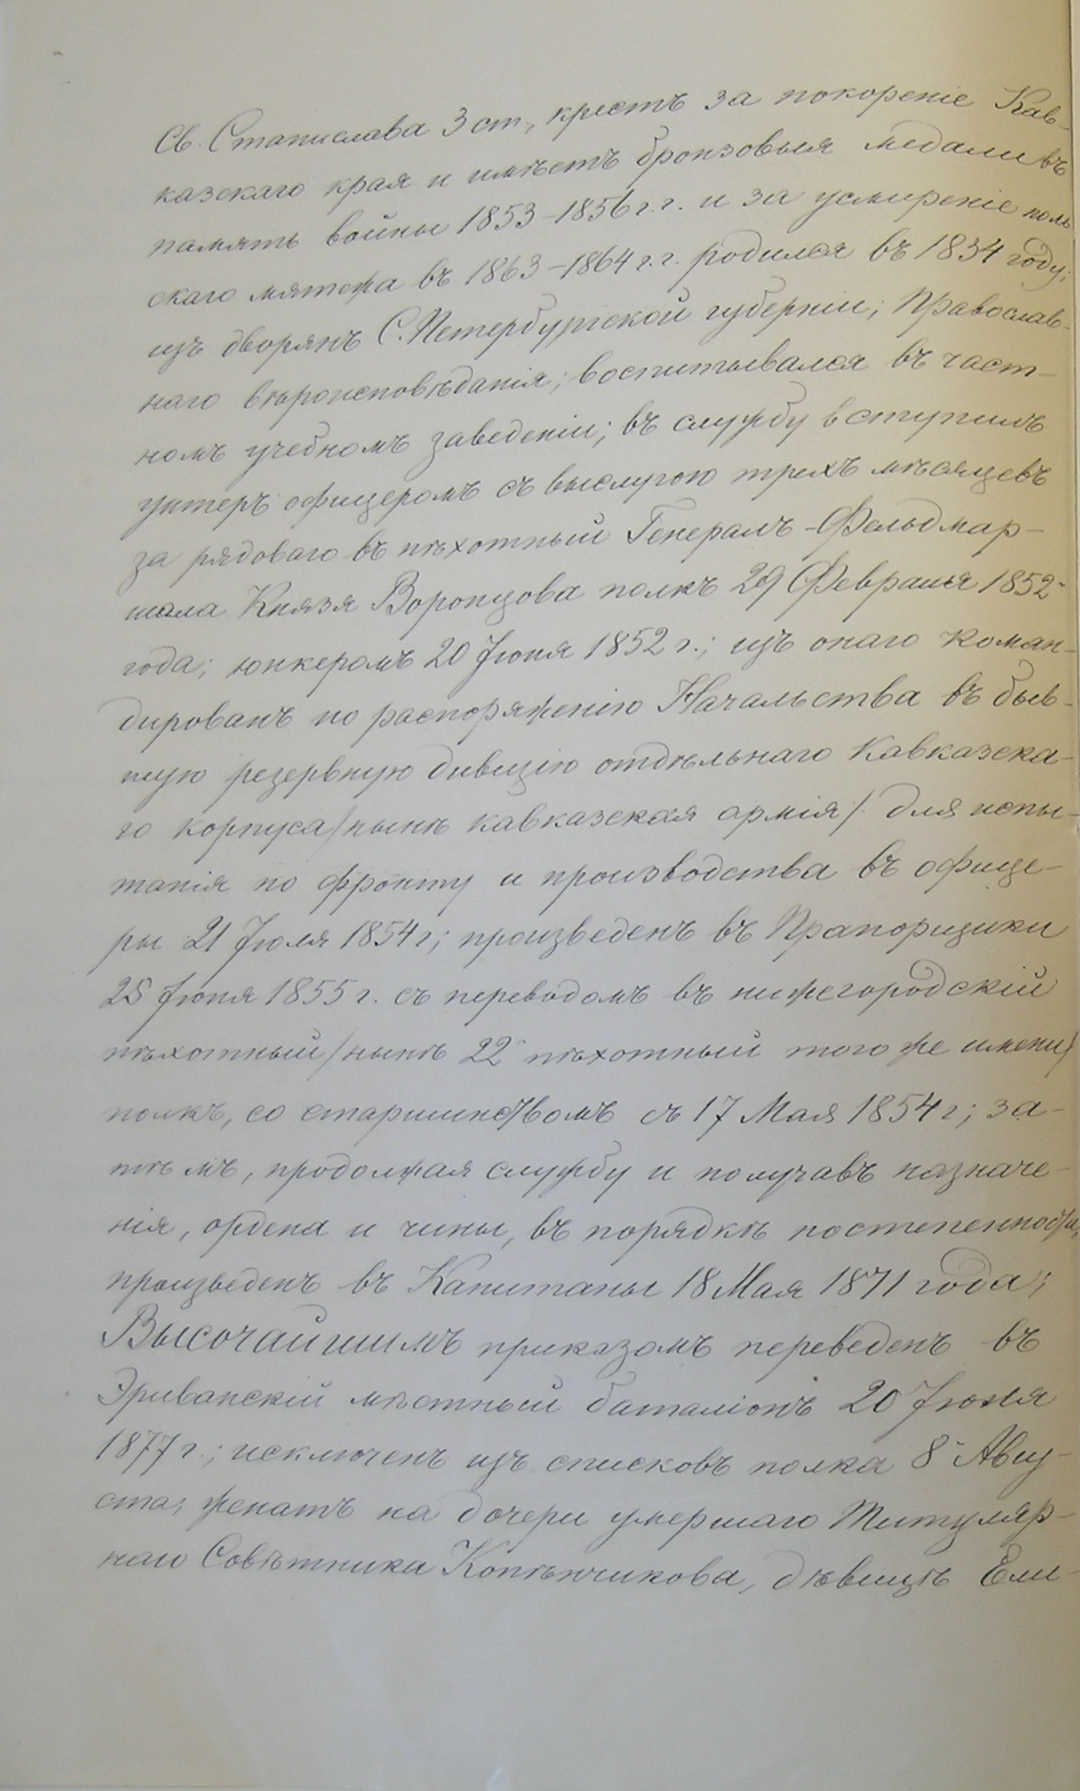 Св. Станислава 3 ст., крестъ за покореніе Кав-
казскаго края и имѣетъ бронзовыя медали въ
память войны 1853-1856 г.г. и за усмиреніе поль
скаго мятежа въ 1863-1864 г.г. родился въ 1834 году;
изъ дворянъ С.Петербургской губерніи; Православ-
наго вѣроисповѣданія; воспитывался въ част-
номъ учебномъ заведеніи; въ службу вступилъ
унтеръ офицеромъ съ выслугою трехъ мѣсяцевъ
за рядоваго въ пѣхотный Генералъ-Фельдмар-
шала Князя Воронцова полкъ 29 Февраля 1852
года; юнкеромъ 20 Іюня 1852 г.; изъ онаго коман-
дированъ по распоряженію Начальства въ быв-
шую резервную дивизію отдѣльнаго Кавказска-
го корпуса/нынѣ кавказская армія/ для испы-
танія по фронту и производства въ офице-
ры 21 Іюля 1854 г; произведенъ въ Прапорщики
25 Іюня 1855 г. съ переводомъ въ нижегородскій
пѣхотный/нынѣ 22й пѣхотный того же имени/
полкъ, со старшинствомъ съ 17 Мая 1854 г; за-
тѣмъ, продолжая службу и получавъ назначе-
нія, ордена и чины, въ порядкѣ постепенности,
произведенъ въ Капитаны 18 Мая 1871 года;
Высочайшимъ приказомъ переведенъ въ
Эриванскій мѣстный баталіонъ 20 Іюня
1877 г.; исключенъ изъ списковъ полка 8 Авгу-
ста; женатъ на дочери умершаго Титуляр-
наго Совѣтника Копѣнчикова, дѣвицѣ Ели-